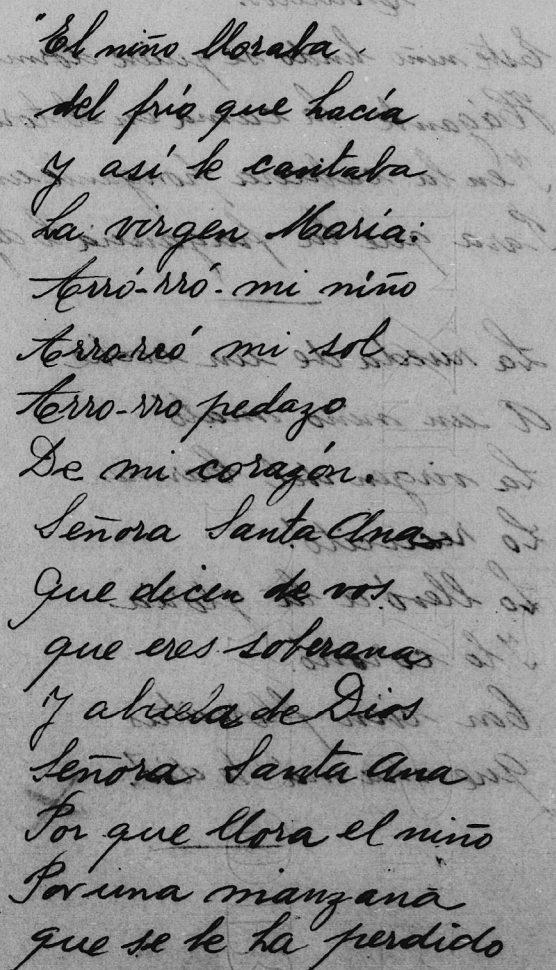 "El niño lloraba.
del frío que hacía
Y así le cantaba
La virgen María:
Arró-rró-mi niño
Arro-rró mi sol
Arro-rro pedazo
De mi corazón.
Señora Santa Ana
Que dicen de vos
que eres soberana
Y abuela de Dios
Señora Santa Ana
Por que llora el niño
Por una manzana
que se le ha perdido